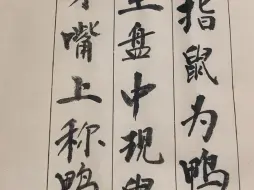 指鼠为鸭
盘中现
嘴上称鸭